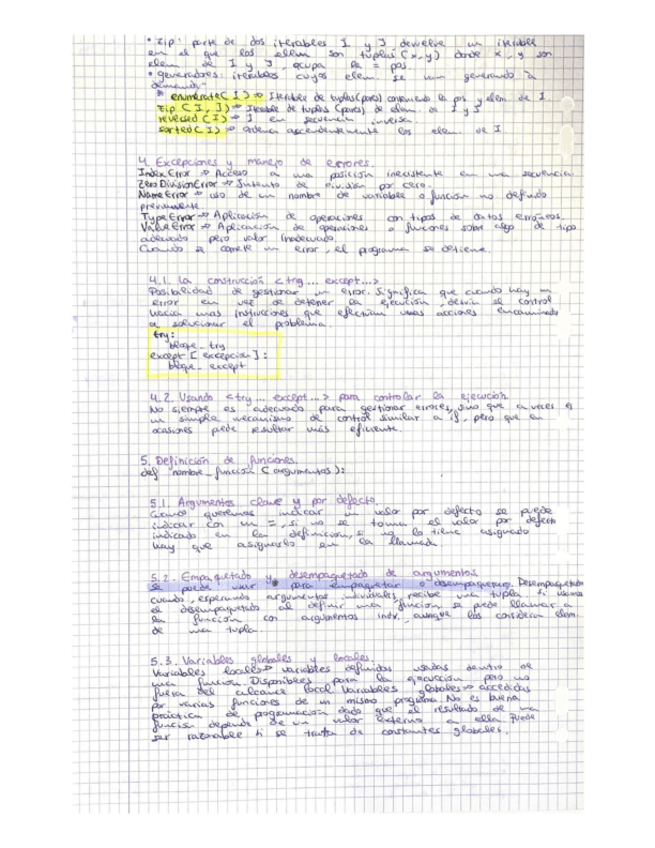 • zip: parte de dos iterables I y J devuelve un iterable
en el que los elem son tuplas (x,y) donde x, y son
elem de I y J, ocupa la = pos.
• generadores: iterables cuyos elem. se van generando "a
demanda"
* enumerate(I) => Iterable de tuplas (pares) conteniendo la pos y elem. de I.
zip (I, J) => Iterable de tuplas (pares) de elem. de I y J
reversed (I) => I en secuencia inversa
sorted (I) => Ordena ascendentemente los elem. de I.
4. Excepciones y manejo de errores.
Index Error => Acceso a una posición inexistente en una secuencia
ZeroDivisionError => Intento de división por cero.
NameError => uso de un nombre de variable o función no definido
previamente
TypeError => Aplicación de operaciones con tipos de datos erróneos.
ValueError => Aplicación de operaciones o funciones sobre algo de tipo
adecuado pero valor inadecuado
Cuando se comete un error, el programa se detiene.
4.1. La construcción <try... except...>
Posibilidad de gestionar un error. Significa que cuando hay un
error en vez de detener la ejecución, desvía el control
hacia unas instrucciones que efectúan unas acciones encaminadas
a solucionar el problema.
try:
bloque_try
except [excepcion]:
bloque_except
4.2. Usando <try... except...> para controlar la ejecución
No siempre es adecuado para gestionar errores, sino que a veces es
un simple mecanismo de control similar a if, pero que en
ocasiones puede resultar más eficiente.
5. Definición de funciones.
def nombre_función (argumentos):
5.1. Argumentos clave y por defecto.
Cuando queremos indicar un valor por defecto se puede
indicar con un =, si no se toma el valor por defecto
indicado en la definición, si no lo tiene asignado
hay que asignarlo en la llamada.
5.2. Empaquetado y desempaquetado de argumentos.
Se puede usar * para empaquetar o desempaquetar. Desempaquetado
cuando, esperando argumentos individuales, recibe una tupla. Si usamos
el desempaquetado al definir una función se puede llamar a
la función con argumentos indv. aunque los considera elem.
de una tupla.
5.3. Variables globales y locales.
Variables locales => variables definidas usadas dentro de
una función. Disponibles para la ejecución pero no
fuera del alcance local. Variables globales => accedidas
por varias funciones de un mismo programa. No es buena
práctica de programación dado que el resultado de una
función depende de un valor externo a ella. Puede
ser razonable si se trata de constantes globales.